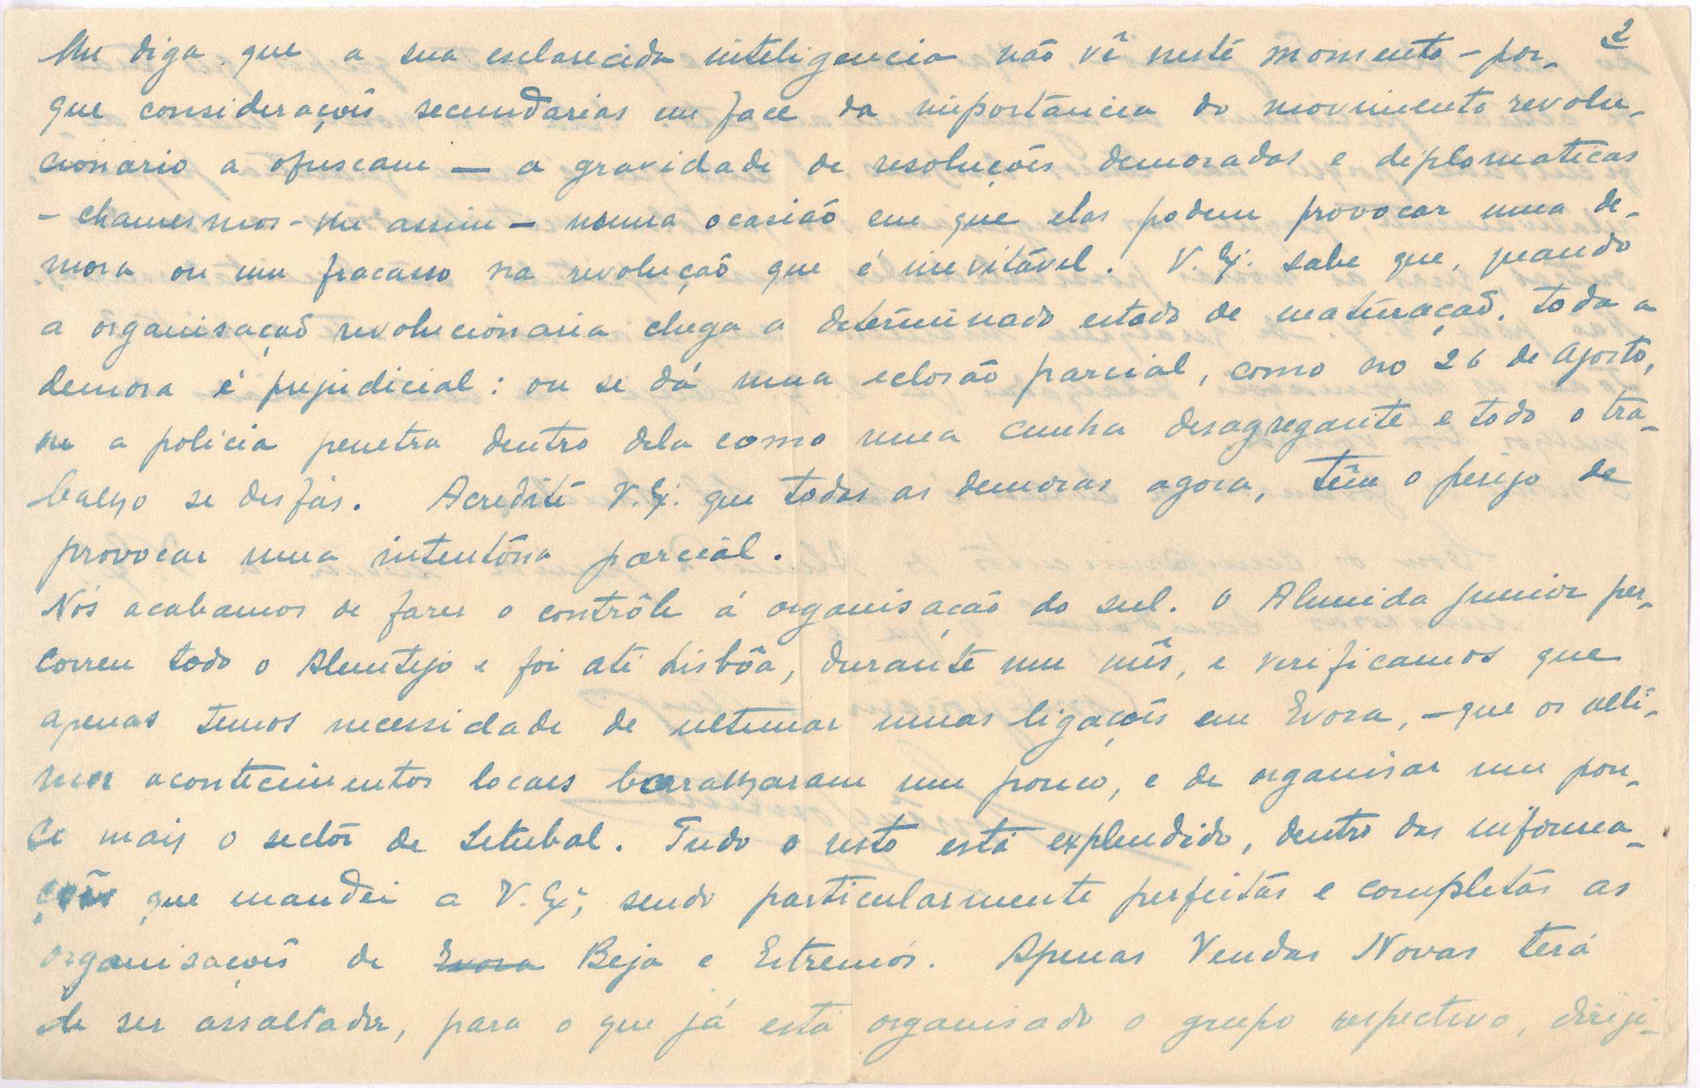 2
lhe diga que a sua esclarecida inteligencia não vê neste momento – por-
que consideraçoês secundarias em face da importância do movimento revolu-
cionario a ofuscam — a gravidade de resoluçoês demoradas e diplomaticas
– chamemos-lhe assim – numa ocasiaõ em que elas podem provocar uma de-
mora ou um fracasso na revoluçaõ que é inevitável. V. Ex. sabe que, quando
a organisaçaõ revolucionaria chega a determinado estado de maturaçaõ, toda a
demora é prejudicial: ou se dá uma eclosão parcial, como no 26 de Agosto,
ou a policia penetra dentro dela como uma cunha desagregante e todo o tra-
balho se desfás. Acredite V. Ex. que todas as demoras agora, têm o perigo de
provocar uma intentôna parcial.
Nós acabamos de fazer o contrôle á organisacão do sul. O Almeida Junior per-
correu todo o Alemtejo e foi até Lisbôa, durante um mês, e verificamos que
apenas temos necessidade de ultimar umas ligaçoês em Evora, – que os ulti-
mos acontecimentos locaes baralharam um pouco, e de organisar um pou-
co mais o sectôr de Setubal. Tudo o resto está explendido, dentro das informa-
çoês que mandei a V. Ex., sendo particularmente perfeitas e completas as
organisaçoês de Evora Beja e Estremós. Apenas Vendas Novas terá
de ser assaltada, para o que já está organisado o grupo respectivo, diriji-